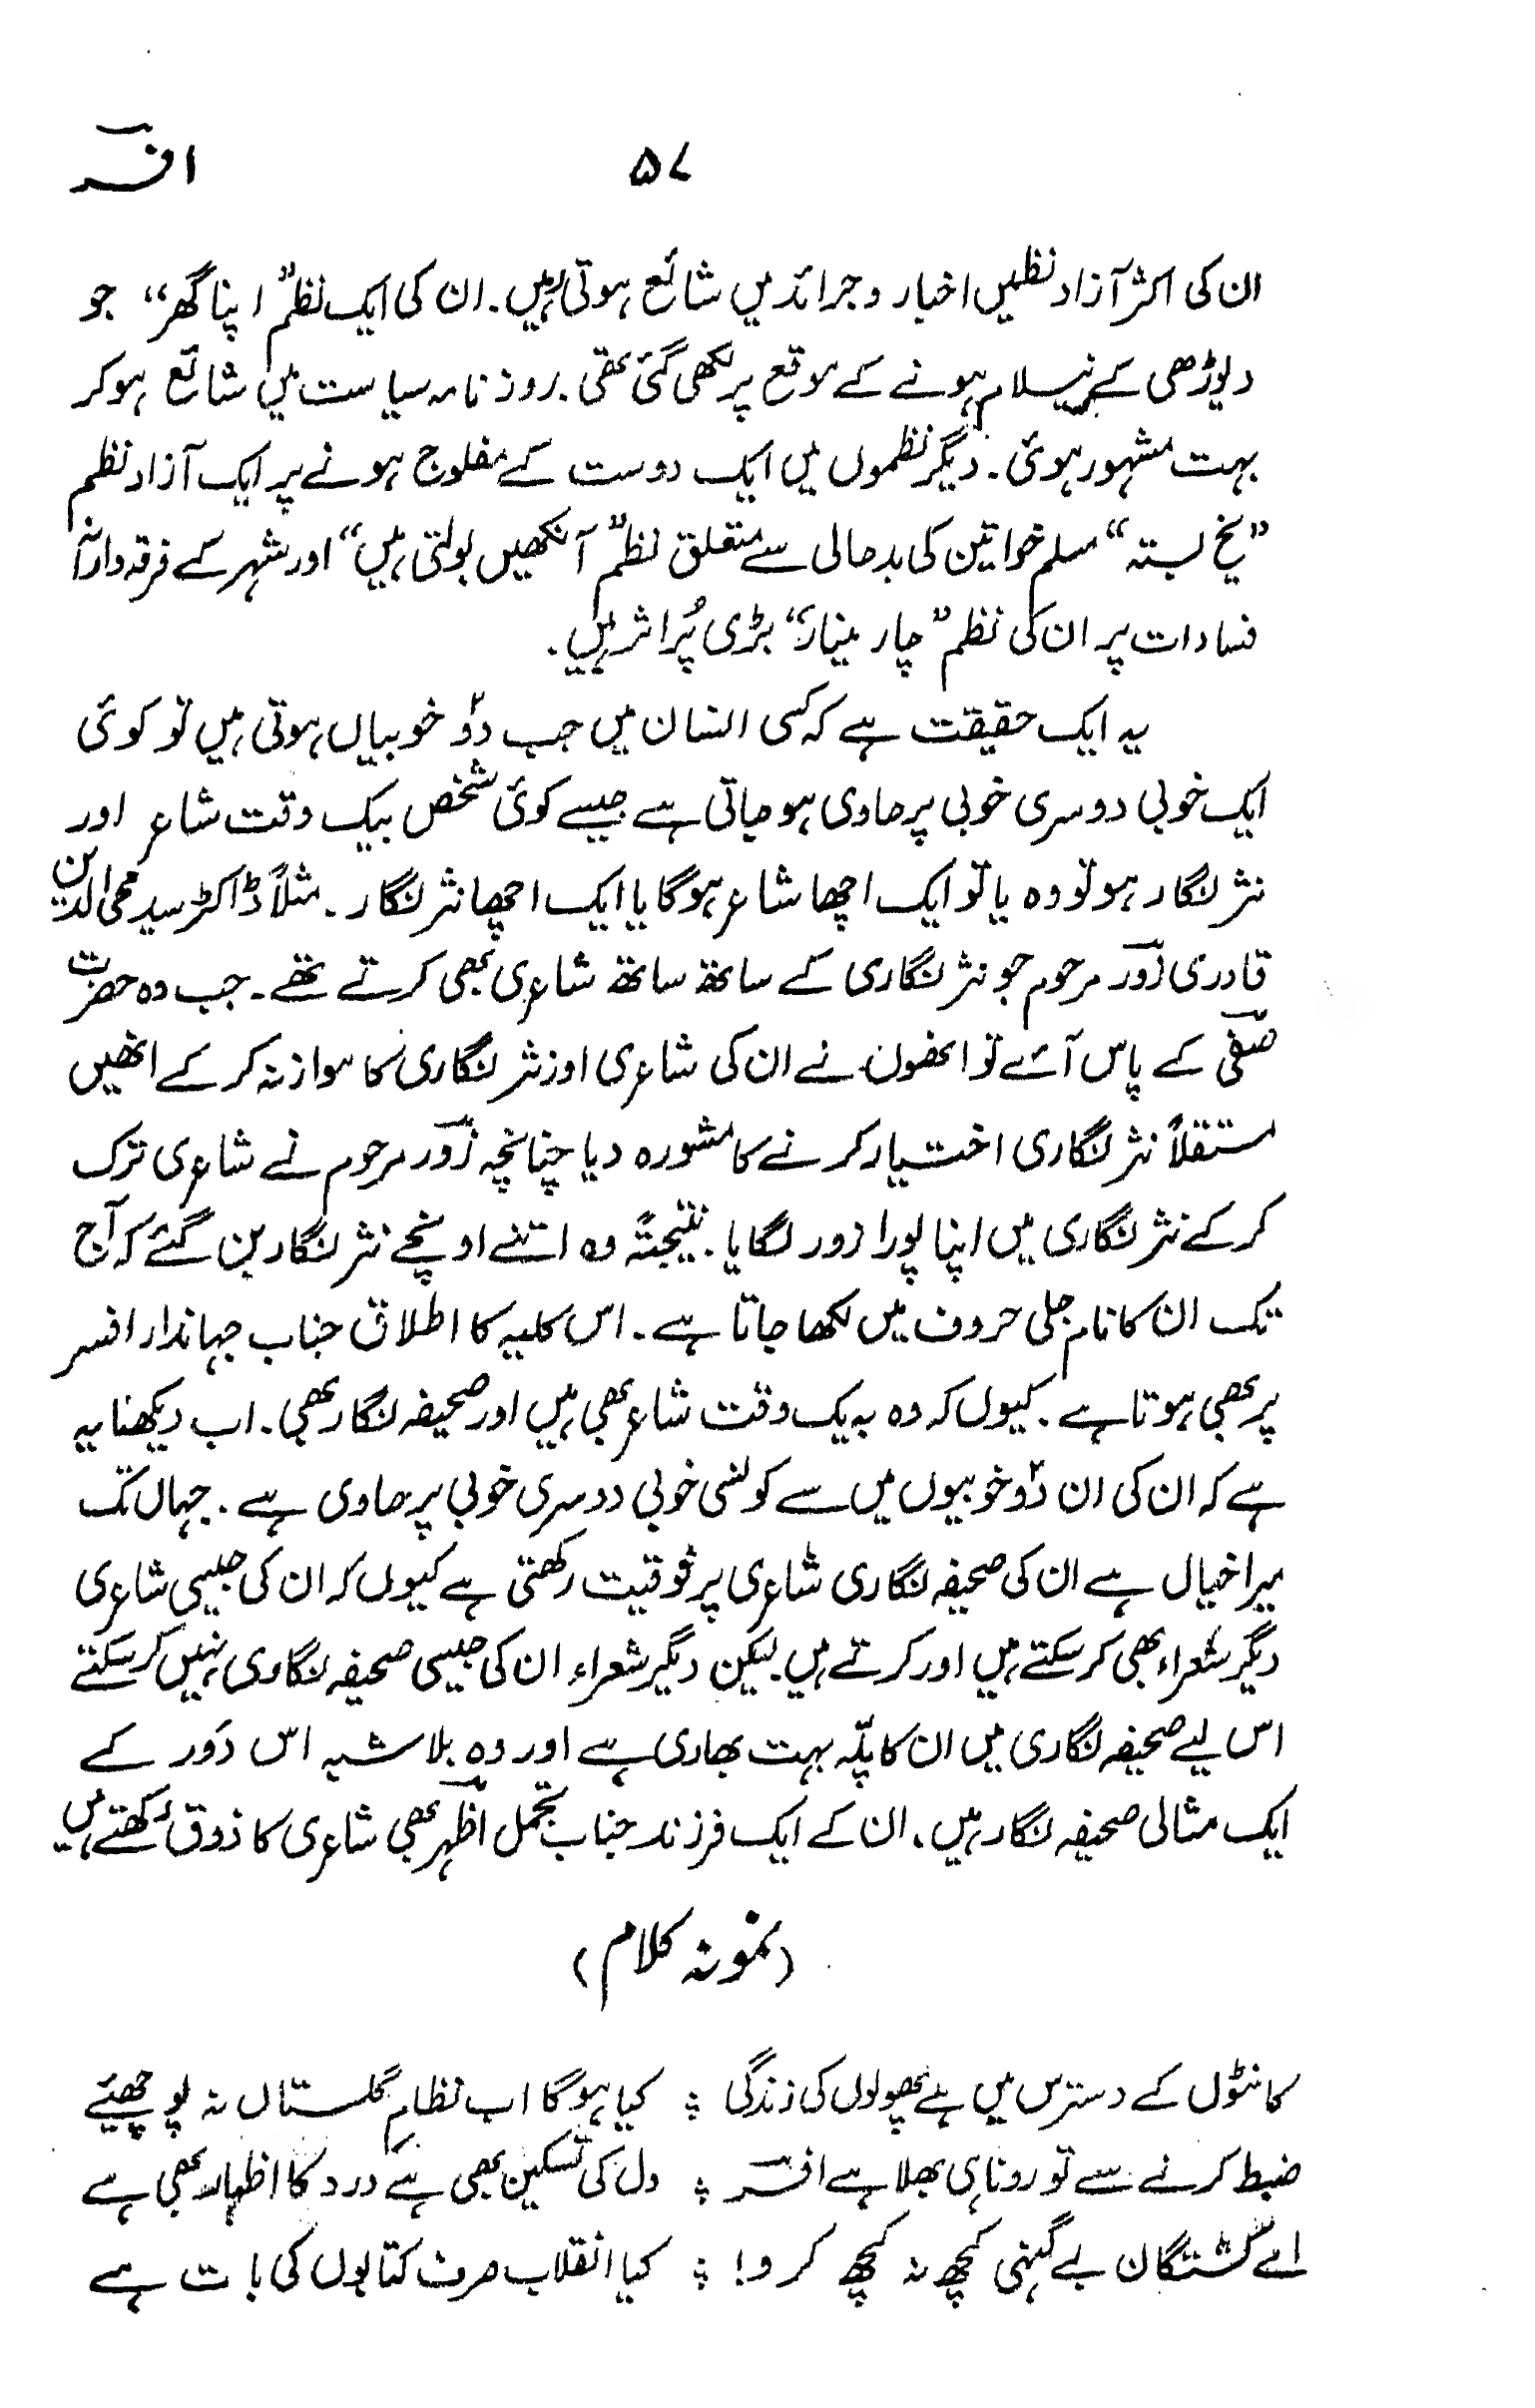 ۵۷ افسؔر
ان کی اکثر آزاد نظمیں اخبار و جرائد میں شائع ہوتی ہیں۔ ان کی ایک نظم "اپنا گھر" جو
دیوڑھی کے نیلام ہونے کے موقع پر لکھی گئی تھی۔ روزنامہ سیاست میں شائع ہوکر
بہت مشہور ہوئی۔ دیگر نظموں میں ایک دوست کے مفلوج ہونے پر ایک آزاد نظم
"یخ بستہ" مسلم خواتین کی بدحالی سے متعلق نظم "آنکھیں بولتی ہیں" اور شہر کے فرقہ وارانہ
فسادات پر ان کی نظم "چار مینار" بڑی پُر اثر ہیں۔
یہ ایک حقیقت ہے کہ کسی انسان میں جب دوؔ خوبیاں ہوتی ہیں تو کوئی
ایک خوبی دوسری خوبی پر حاوی ہوجاتی ہے جیسے کوئی شخص بیک وقت شاعر اور
نثر نگار ہو تو وہ یا تو ایک اچھا شاعر ہوگا یا ایک اچھا نثر نگار۔ مثلاً ڈاکٹر سید محی الدین
قادری زوؔر مرحوم جو نثر نگاری کے ساتھ ساتھ شاعری بھی کرتے تھے۔ جب وہ حضرت
صفیؔ کے پاس آئے تو انھوں نے ان کی شاعری اور نثر نگاری کا موازنہ کر کے انھیں
مستقلاً نثر نگاری اختیار کرنے کا مشورہ دیا چنانچہ زوؔر مرحوم نے شاعری ترک
کر کے نثر نگاری میں اپنا پورا زور لگایا۔ نتیجتہً وہ اتنے اونچے نثر نگار بن گئے کہ آج
تک ان کا نام جلی حروف میں لکھا جاتا ہے۔ اس کلیہ کا اطلاق جناب جہاندار افسر
پر بھی ہوتا ہے۔ کیوں کہ وہ بہ یک وقت شاعر بھی ہیں اور صحیفہ نگار بھی۔ اب دیکھنا یہ
ہے کہ ان کی ان دوؔ خوبیوں میں سے کونسی خوبی دوسری خوبی پر حاوی ہے۔ جہاں تک
میرا خیال ہے ان کی صحیفہ نگاری شاعری پر فوقیت رکھتی ہے کیوں کہ ان کی جیسی شاعری
دیگر شعراء بھی کرسکتے ہیں اور کرتے ہیں۔ لیکن دیگر شعراء ان کی جیسی صحیفہ نگاری نہیں کرسکتے
اس لیے صحیفہ نگاری میں ان کا پلّہ بہت بھاری ہے اور وہ بلا شبہ اس دَور کے
ایک مثالی صحیفہ نگار ہیں۔ ان کے ایک فرزند جناب تجمل اظہؔر بھی شاعری کا ذوق رکھتے ہیں
(نمونہ کلام)
کانٹوں کے دسترس میں ہے پھولوں کی زندگی ؛ کیا ہوگا اب نظامِ گلستاں نہ پوچھئیے
ضبط کرنے سے تو رونا ہی بھلا ہے افسؔر ؛ دل کی تسکین بھی ہے درد کا اظہار بھی ہے
اے کُشتگان بے گہنی کچھ نہ کچھ کرو! ؛ کیا انقلاب صرف کتابوں کی بات ہے